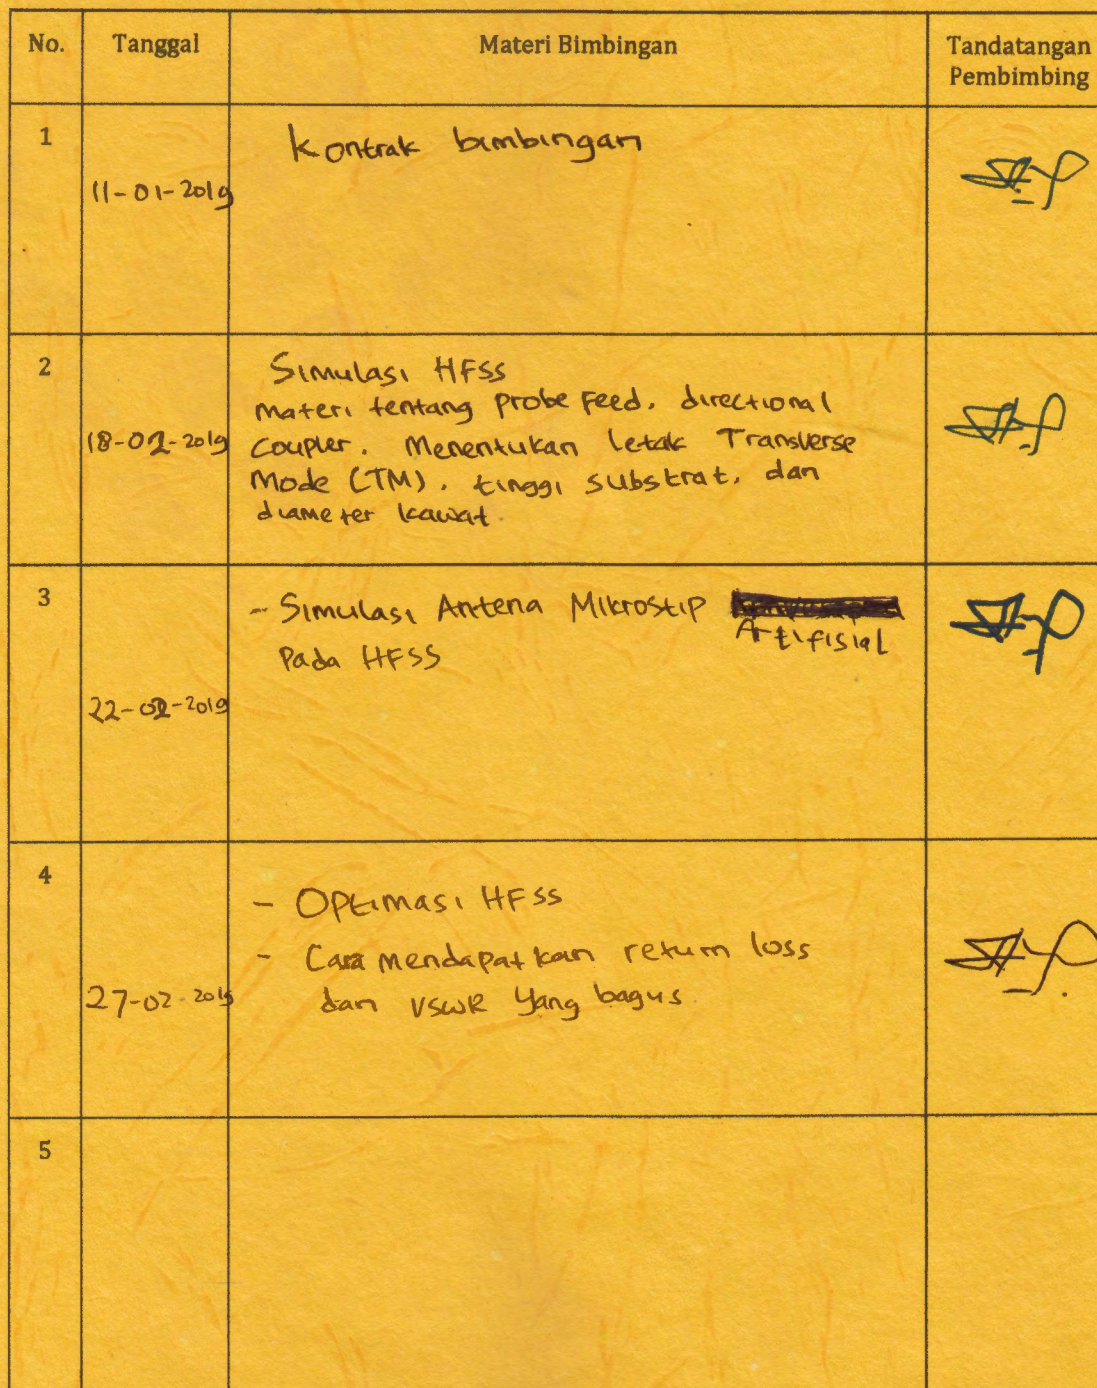 No. Tanggal Materi Bimbingan Tandatangan
Pembimbing
1
Kontrak bimbingan
11-01-2019
2
Simulasi HFSS
materi tentang probe feed, directional
18-02-2019 coupler. Menentukan letak Transverse
Mode (TM), tinggi substrat, dan
diameter kawat.
3
- Simulasi Antena Mikrostip
Artifisial
Pada HFSS
22-02-2019
4
- Optimasi HFSS
- Cara mendapatkan return loss
27-02-2019 dan VSWR yang bagus.
5